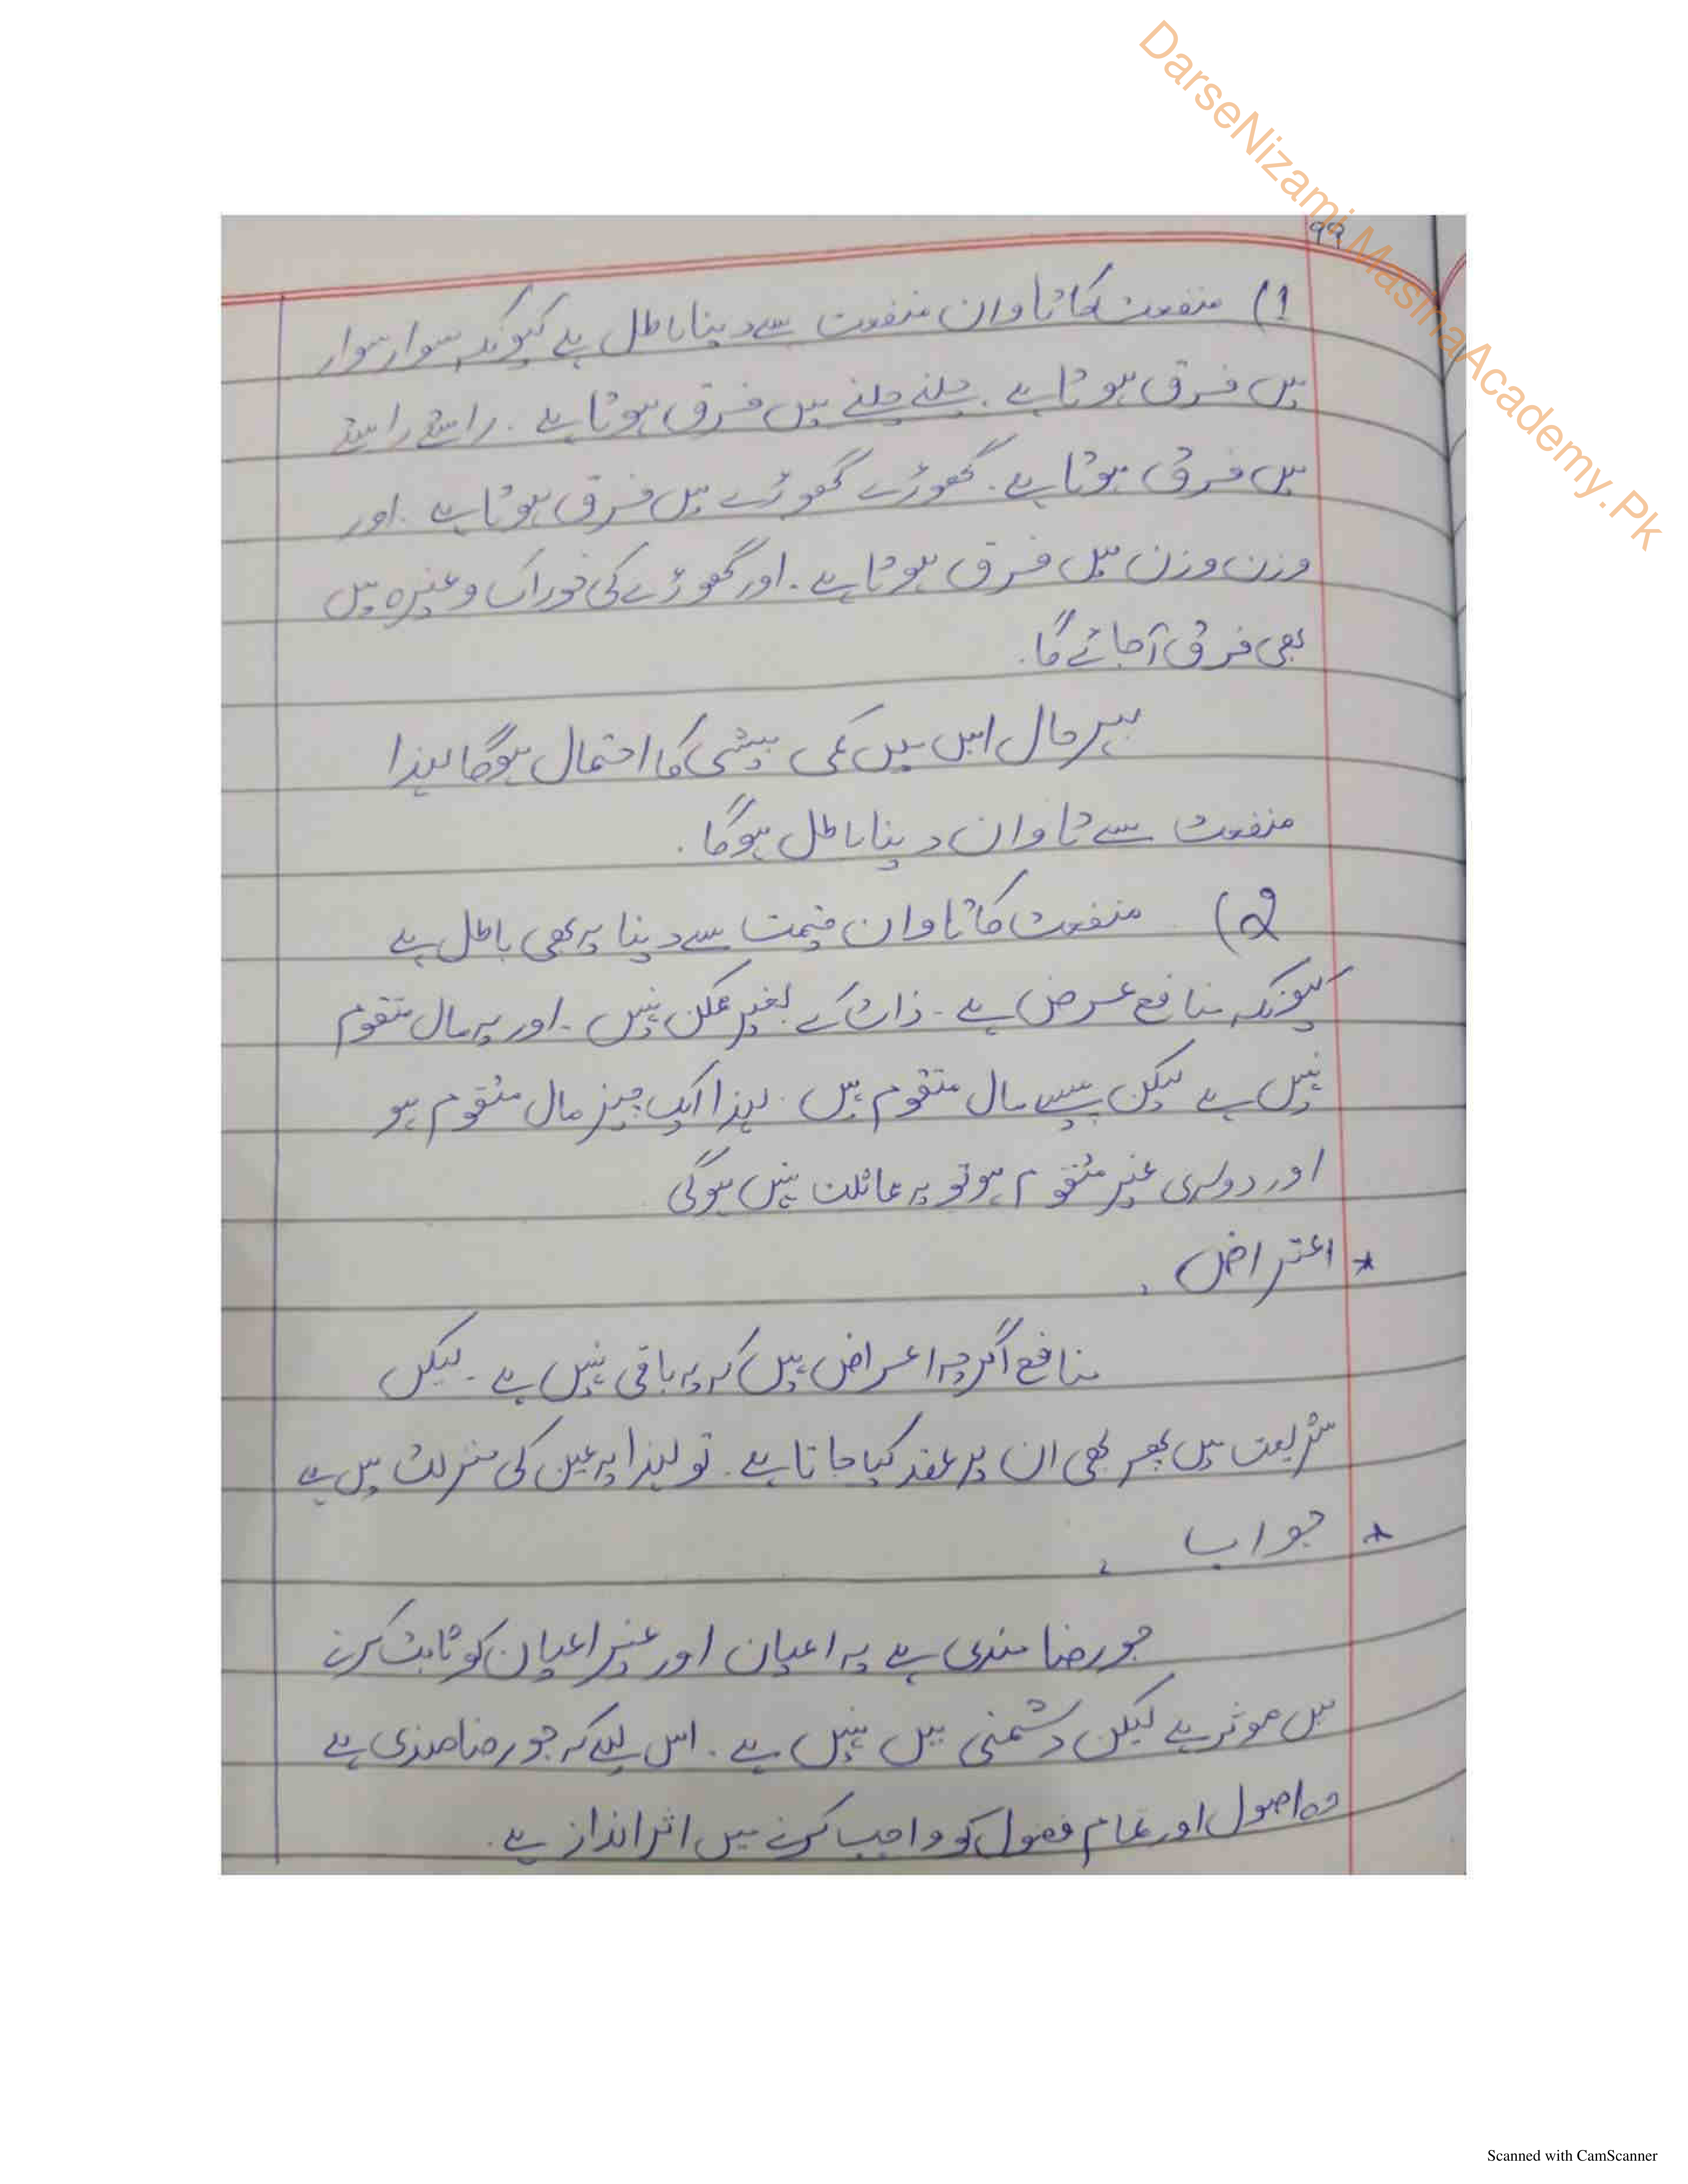 DarseNizami.MasihaAcademy.Pk
۹۹
1) منفعت کا تاوان منفعت سے دینا باطل ہے کیونکہ سوار سوار
میں فرق ہوتا ہے۔ چلنے چلنے میں فرق ہوتا ہے۔ راستے راستے
میں فرق ہوتا ہے۔ گھوڑے گھوڑے میں فرق ہوتا ہے۔ اور
وزن وزن میں فرق ہوتا ہے۔ اور گھوڑے کی خوراک وغیرہ میں
بھی فرق آجائے گا۔
بہرحال اس میں کمی بیشی کا احتمال ہوگا لہذا
منفعت سے تاوان دینا باطل ہوگا۔
2) منفعت کا تاوان قیمت سے دینا یہ بھی باطل ہے
کیونکہ منافع عرض ہے۔ ذات کے بغیر ممکن نہیں۔ اور یہ مال متقوم
نہیں ہے لیکن پیسے مال متقوم ہیں۔ لہذا ایک چیز مال متقوم ہو
اور دوسری غیر متقوم ہو تو یہ مماثلت نہیں ہوگی
* اعتراض
منافع اگرچہ اعراض ہیں کہ یہ باقی نہیں ہے۔ لیکن
شریعت میں پھر بھی ان پر عقد کیا جاتا ہے۔ تو لہذا یہ عین کی منزلت میں ہے
* جواب
جو رضا مندی ہے یہ اعیان اور غیر اعیان کو ثابت کرنے
میں موثر ہے لیکن دشمنی میں نہیں ہے۔ اس لیے کہ جو رضا مندی ہے
وہ اصول اور تمام فضول کو واجب کرنے میں اثر انداز ہے۔
Scanned with CamScanner